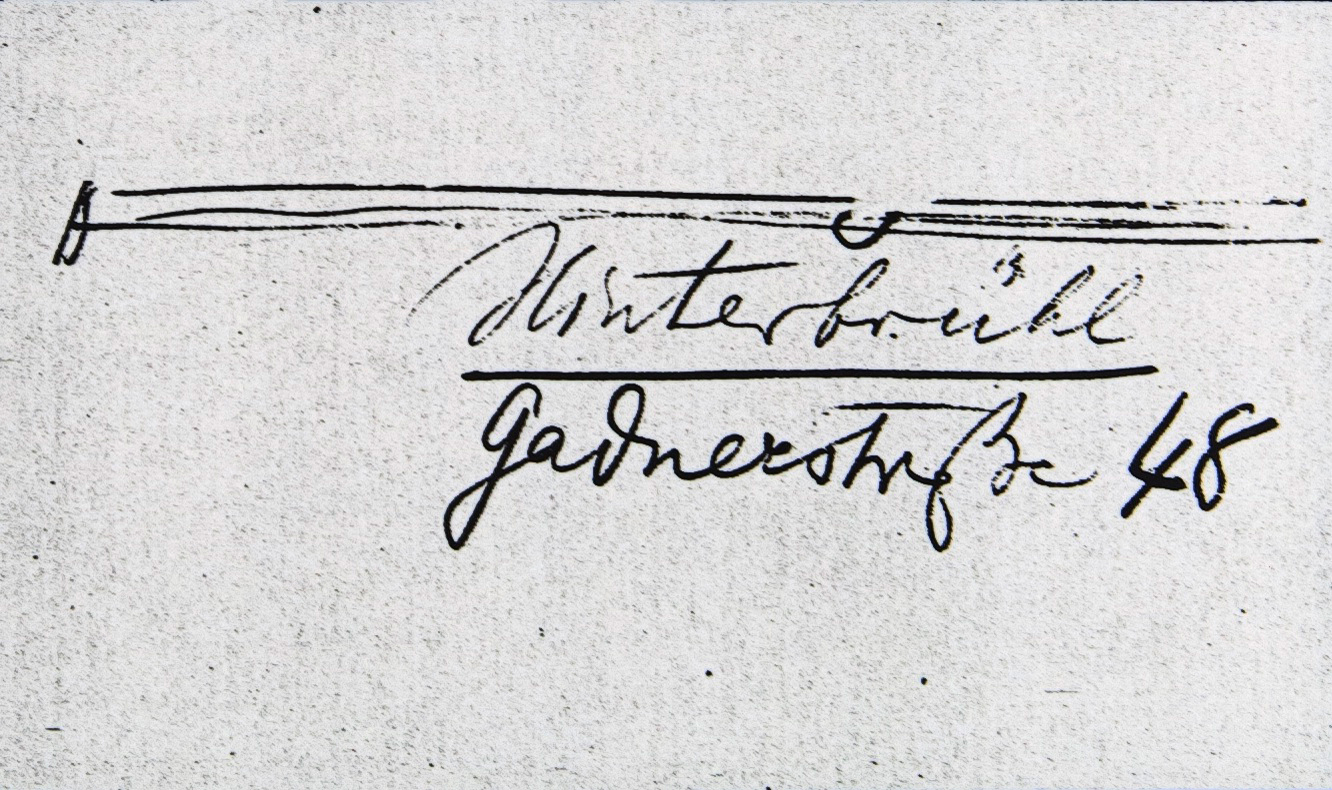 Hinterbrühl
Gadnerstraße 48